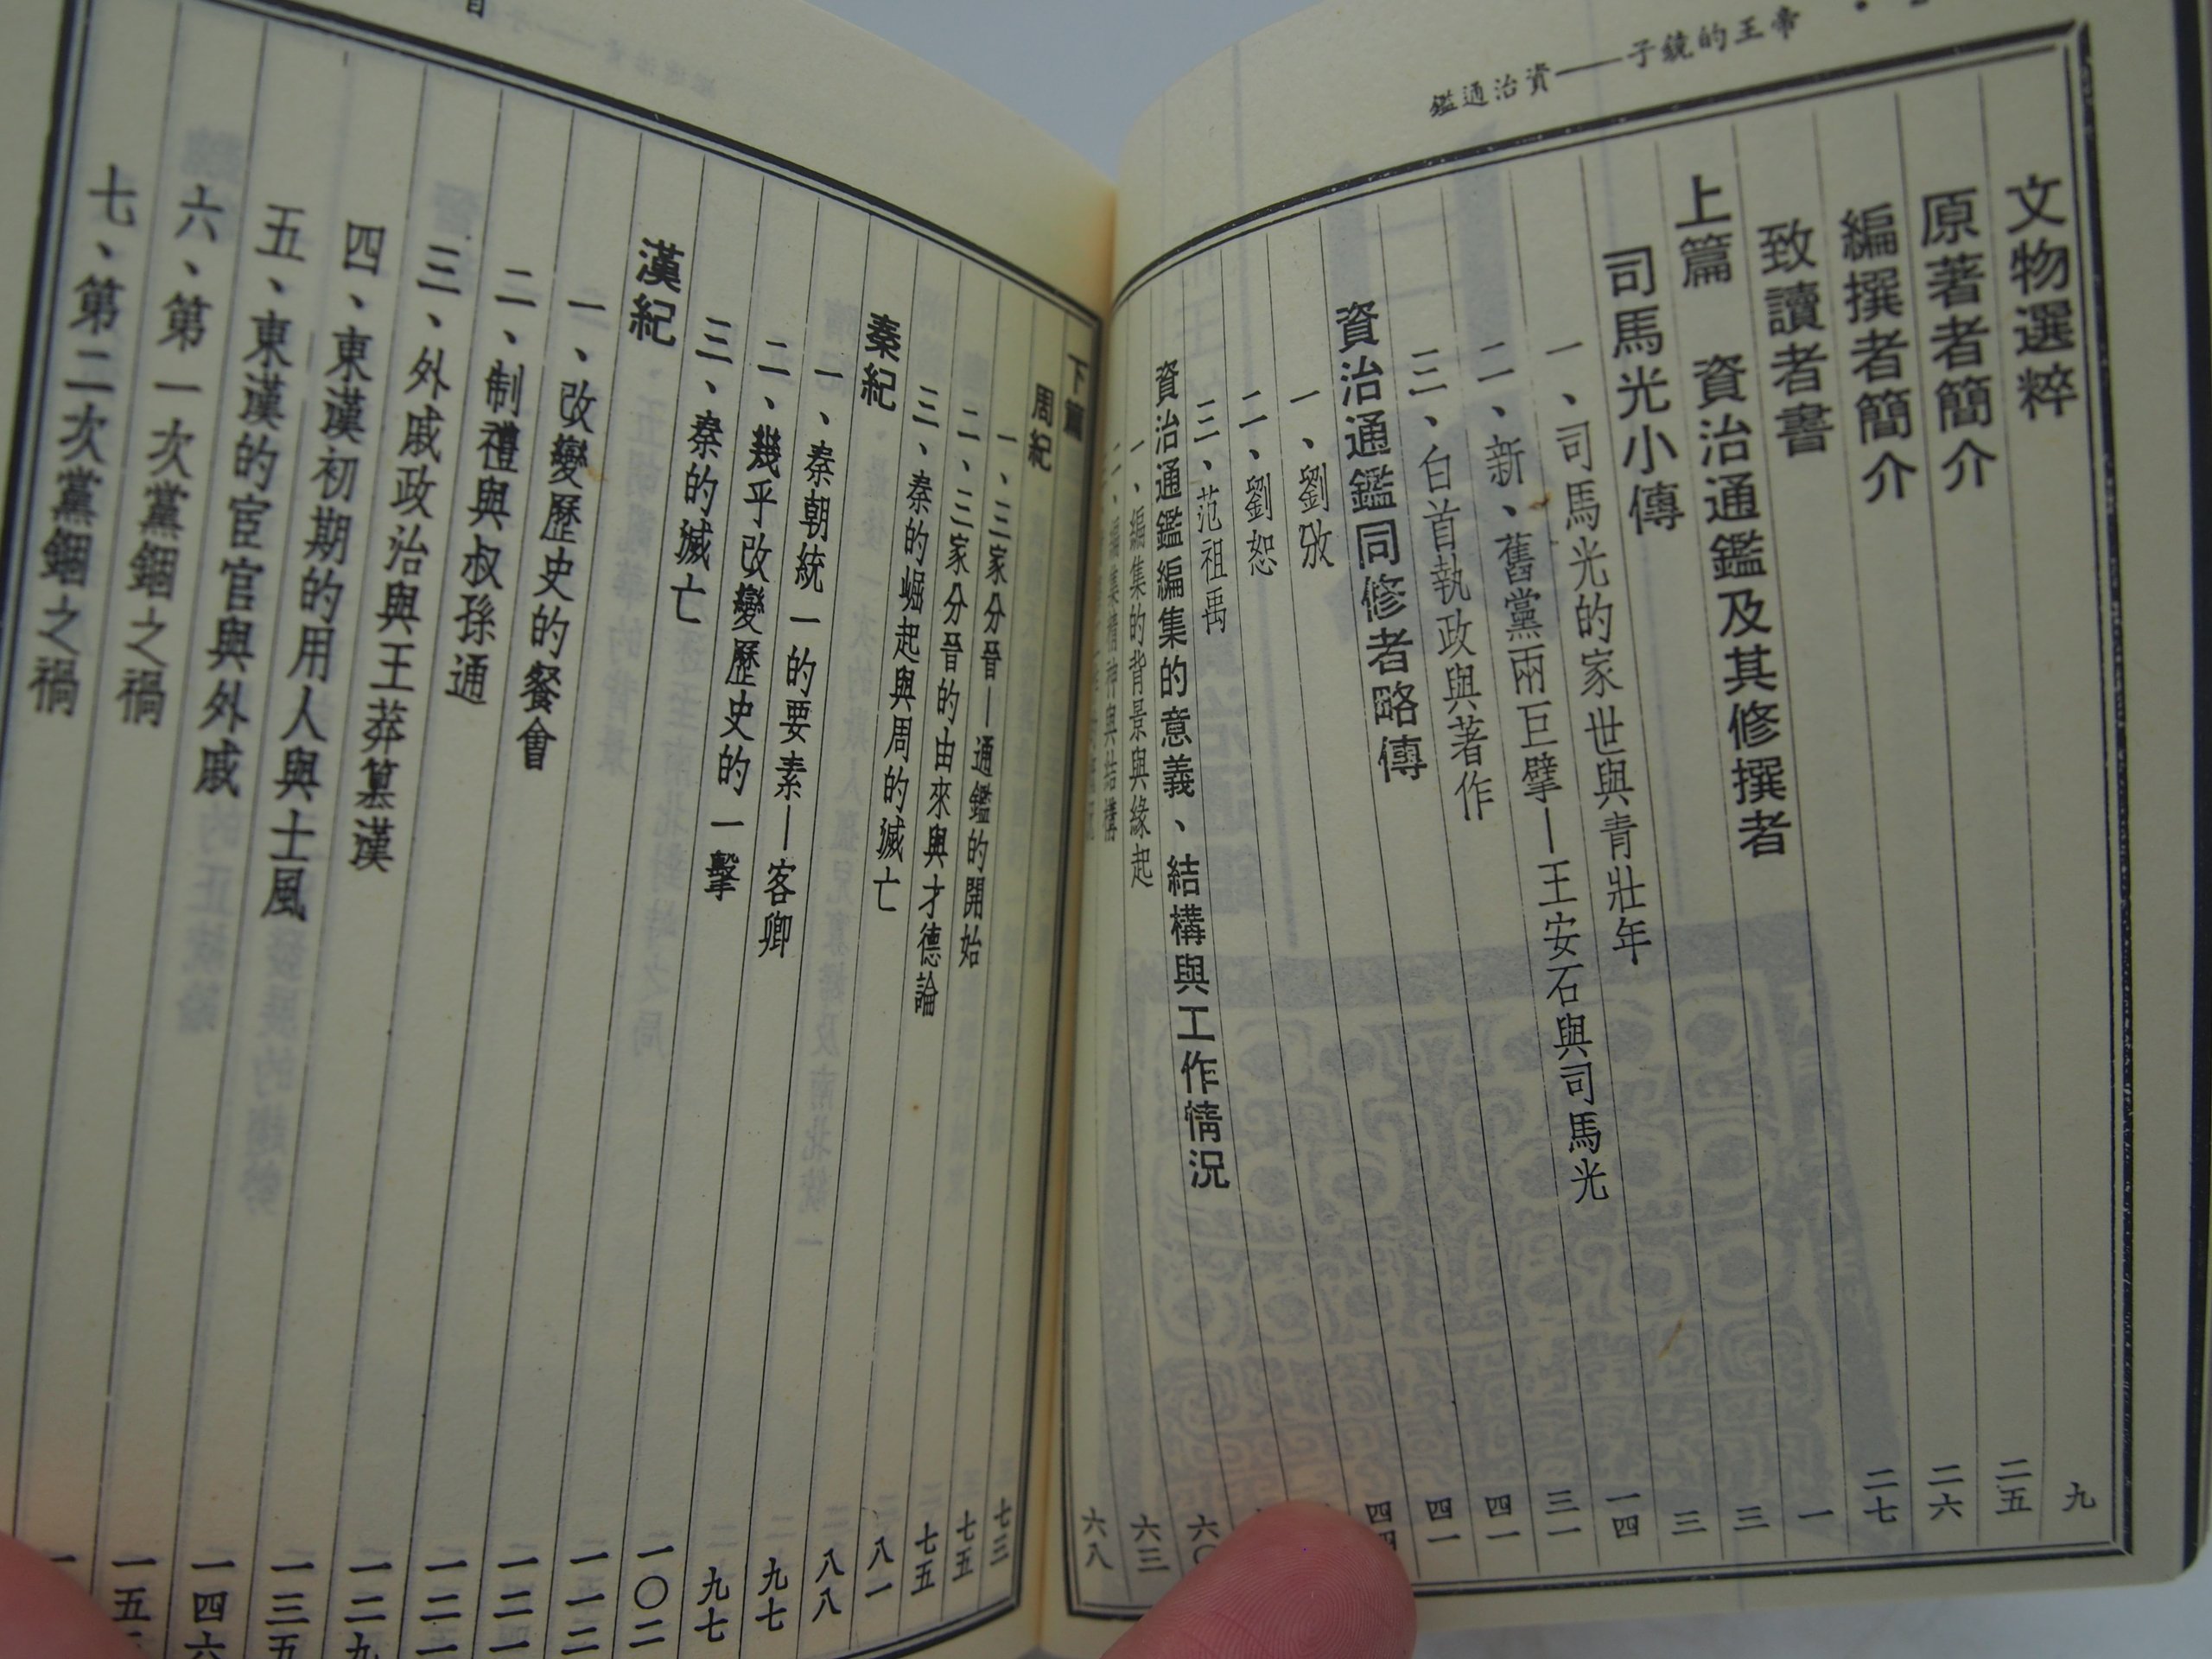 帝王的鏡子——資治通鑑
文物選粹 九
原著者簡介 二五
編撰者簡介 二六
致讀者書 二七
上篇 資治通鑑及其修撰者 一
司馬光小傳 三
一、司馬光的家世與青壯年 三
二、新、舊黨兩巨擘—王安石與司馬光 一四
三、白首執政與著作 三一
資治通鑑同修者略傳 四一
一、劉攽 四一
二、劉恕 四四
三、范祖禹
資治通鑑編集的意義、結構與工作情況
一、編集的背景與緣起 六〇
二、編集精神與結構 六三
六八
下篇 七三
周紀 七五
一、三家分晉—通鑑的開始 七五
二、三家分晉的由來與才德論 八一
三、秦的崛起與周的滅亡 八八
秦紀 九七
一、秦朝統一的要素—客卿 九七
二、幾乎改變歷史的一擊 一〇二
三、秦的滅亡 一一二
漢紀 一二一
一、改變歷史的餐會 一二一
二、制禮與叔孫通 一二九
三、外戚政治與王莽篡漢 一三五
四、東漢初期的用人與士風 一四六
五、東漢的宦官與外戚
六、第一次黨錮之禍
七、第二次黨錮之禍